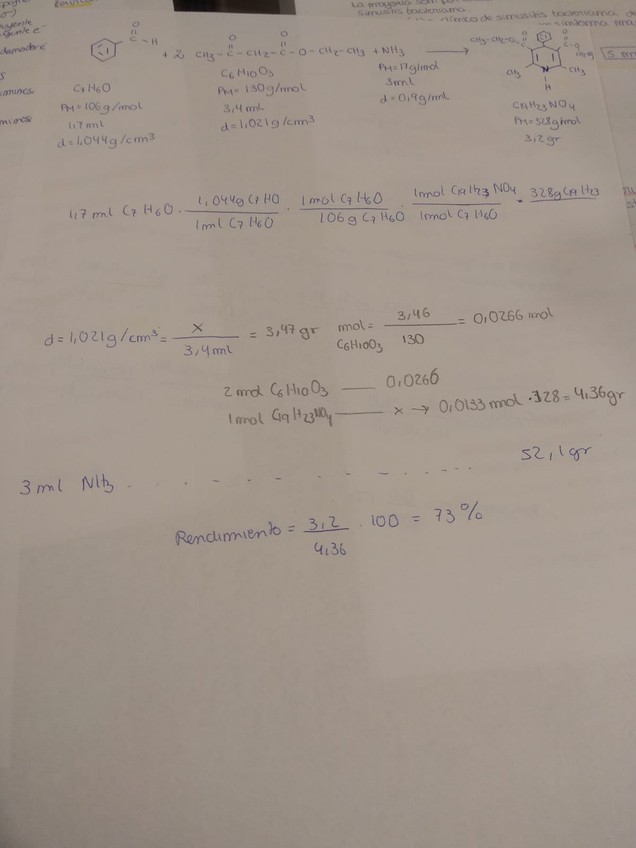 simusitis bacteriama
C-H + 2 CH3-C-CH2-C-O-CH2-CH3 + NH3 →
C7H6O
PM=106g/mol
1,7ml
d=1,044g/cm³
C6H10O3
PM=130g/mol
3,4ml
d=1,021g/cm³
PM=17g/mol
3ml
d=0,9g/ml
CH3-CH2-O
CH3 N CH3
H
C19H23NO4
PM=328g/mol
3,2gr
1,7 ml C7H6O · 1,044g C7HO / 1ml C7H6O · 1mol C7H6O / 106g C7H6O · 1mol C19H23NO4 / 1mol C7H6O · 328g C19H23
d=1,021g/cm³ = x / 3,4ml = 3,47gr mol C6H10O3 = 3,46 / 130 = 0,0266 mol
2 mol C6H10O3 — 0,0266
1 mol C19H23NO4 — x → 0,0133 mol · 328 = 4,36gr
3 ml NH3 . . - - - - - - . . . . 52,1gr
Rendimiento = 3,2 / 4,36 · 100 = 73%